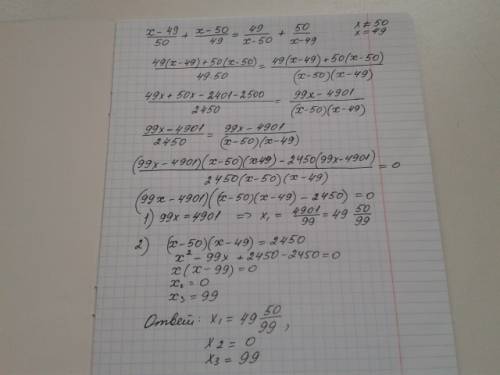 (x-49)/50 + (x-50)/49 = 49/(x-50) + 50/(x-49)
x≠50
x=49
(49(x-49)+50(x-50))/(49·50) = (49(x-49)+50(x-50))/((x-50)(x-49))
(49x+50x-2401-2500)/2450 = (99x-4901)/((x-50)(x-49))
(99x-4901)/2450 = (99x-4901)/((x-50)(x-49))
((99x-4901)(x-50)(x-49)-2450(99x-4901))/(2450(x-50)(x-49)) = 0
(99x-4901)((x-50)(x-49)-2450)=0
1) 99x=4901 => x₁ = 4901/99 = 49 50/99
2) (x-50)(x-49)=2450
x²-99x+2450-2450=0
x(x-99)=0
x₂=0
x₃=99
Ответ: x₁ = 49 50/99,
x2 = 0
x3 = 99